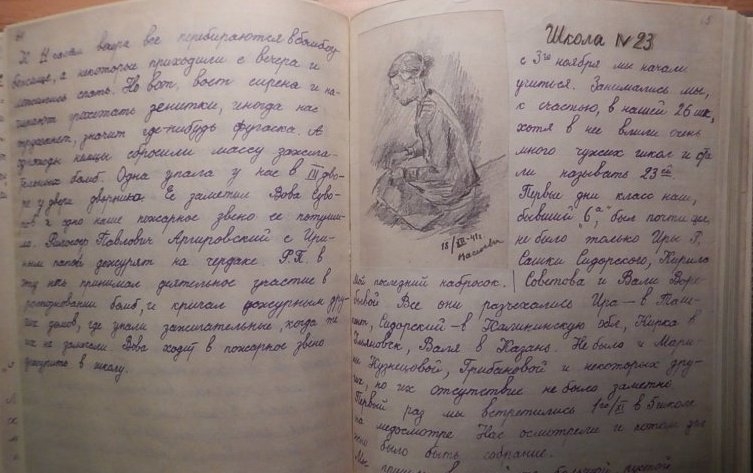 К 11 часам вечера все перебираются в бомбоу
бежище, а некоторые приходили с вечера и
ложились спать. Но вот, воет сирена и на-
чинают грохотать зенитки, иногда нас
тряхнет, значит где-нибудь фугаска. А
однажды немцы сбросили массу зажига-
тельных бомб. Одна упала у нас в III дво-
ре у двери дворника. Ее заметил Вова Суво-
ров и одно наше пожарное звено ее потуши-
ло. Павлович Аргировский с Ири-
ным папой дежурят на чердаке. Р.П. в
эту ночь принимал деятельное участие в
бомб, и кричал дежурным дру-
гих домов, где упали зажигательные, когда те
их не замечали. Вова ходит в пожарное звено
дежурить в школу.
15
Школа № 23
с 3го ноября мы начали
учиться. Занимались мы,
к счастью, в нашей 26 шк,
хотя в нее влили очень
много чужих школ и ста
ли называть 23ей.
Первые дни класс наш,
бывший "6а", был почти цел,
не было только Иры Г.
Сашки Сидорского, Кирилла
18/XII-41г.
Мой последний набросок. Советова и Вали Воро-
бьевой Все они разъехались Ира – в Таш-
кент, Сидорский – в Калининскую обл, Кирка в
Ульяновск, Валя в Казань. Не было и Мари-
ни Кузнецовой, Грибановой и некоторых дру-
гих, но их отсутствие не было заметно.
Первый раз мы встретились 1го/XI в школе
на медосмотре Нас осмотрели и потом дол
жно было быть собрание.